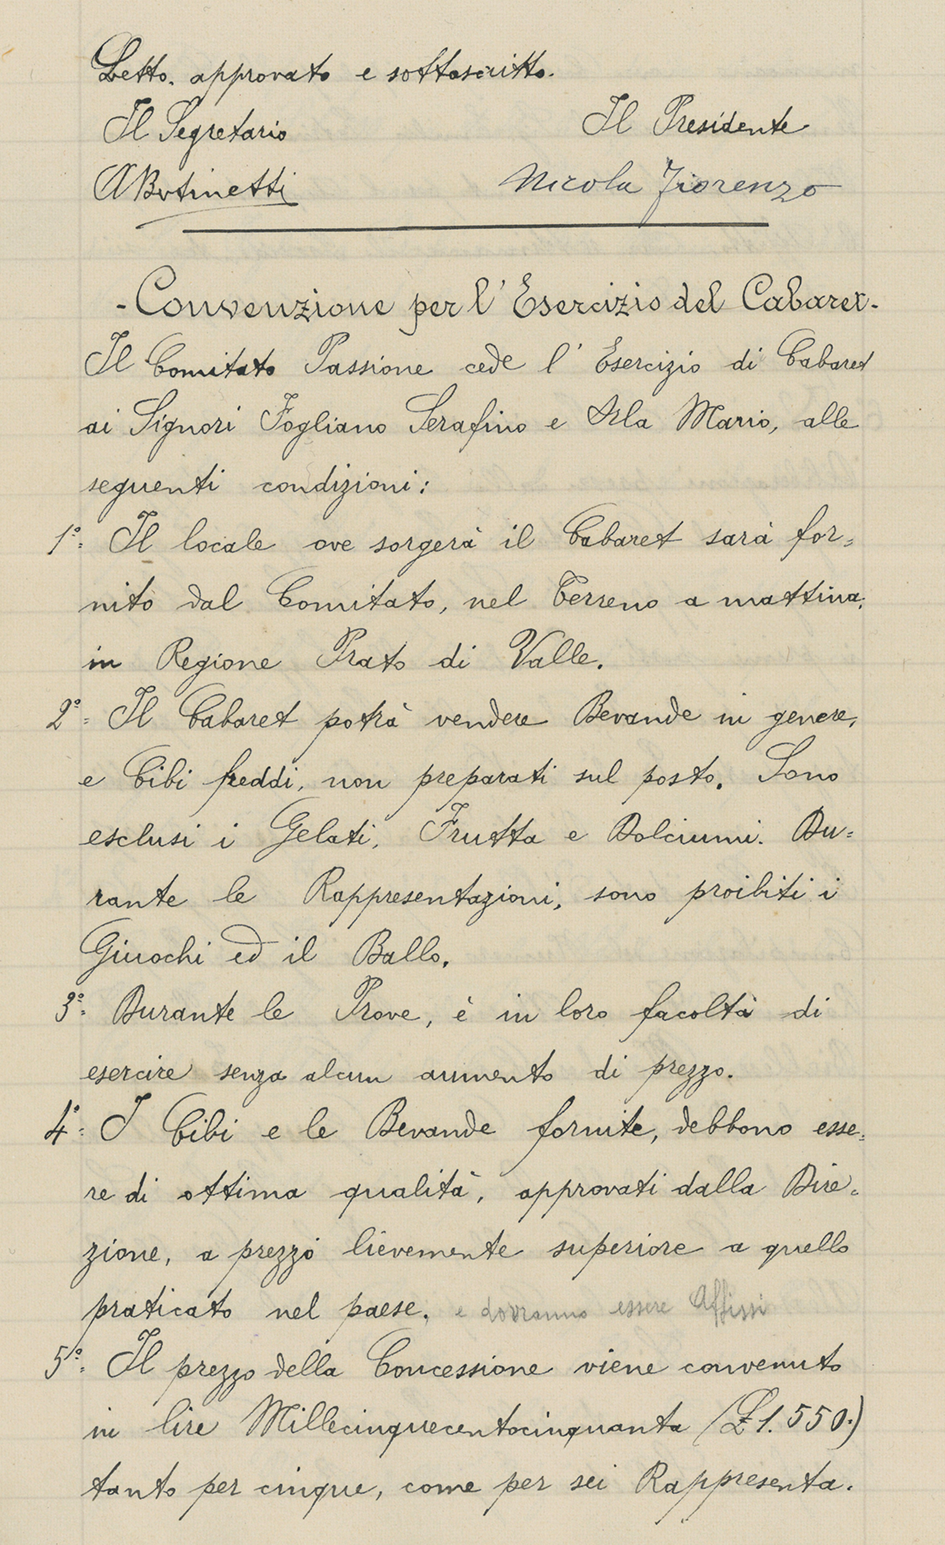 Letto. approvato e sottoscritto.
Il Segretario Il Presidente
Nicola Fiorenzo
- Convenzione per l'Esercizio del Cabaret -
Il Comitato Passione cede l'Esercizio di Cabaret
ai Signori Fogliano Serafino e Isla Mario, alle
seguenti condizioni:
1°= Il locale ove sorgerà il Cabaret sarà for=
nito dal Comitato, nel Terreno a mattina,
in Regione Prato di Valle.
2°= Il Cabaret potrà vendere Bevande in genere,
e Cibi freddi, non preparati sul posto. Sono
esclusi i Gelati, Frutta e Dolciumi. Du=
rante le Rappresentazioni, sono proibiti i
Giuochi ed il Ballo.
3°= Durante le Prove, è in loro facoltà di
esercire senza alcun aumento di prezzo.
4°= I Cibi e le Bevande fornite, debbono esse=
re di ottima qualità, approvati dalla Dire=
zione, a prezzo lievemente superiore a quello
praticato nel paese. e dovranno essere Affissi
5°= Il prezzo della Concessione viene convenuto
in lire Millecinquecentocinquanta (£ 1.550.)
tanto per cinque, come per sei Rappresenta.